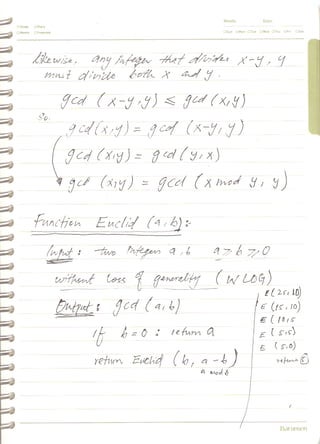 Likewise, any integer that divides x-y, y
must divide both x and y.
gcd (x-y, y) ≤ gcd (x,y)
So,
gcd (x,y) = gcd (x-y, y)
gcd (x,y) = gcd (y,x)
gcd (x,y) = gcd (x mod y, y)
Function Euclid (a, b):-
Input: two integers a, b a ≥ b ≥ 0
without loss of generality (WLOG)
Output: gcd (a,b)
if b=0 : return a
return Euclid (b, a-b)
a mod b
E (25,10)
E (15,10)
E (10,5
E (5,5)
E (5,0)
return 5